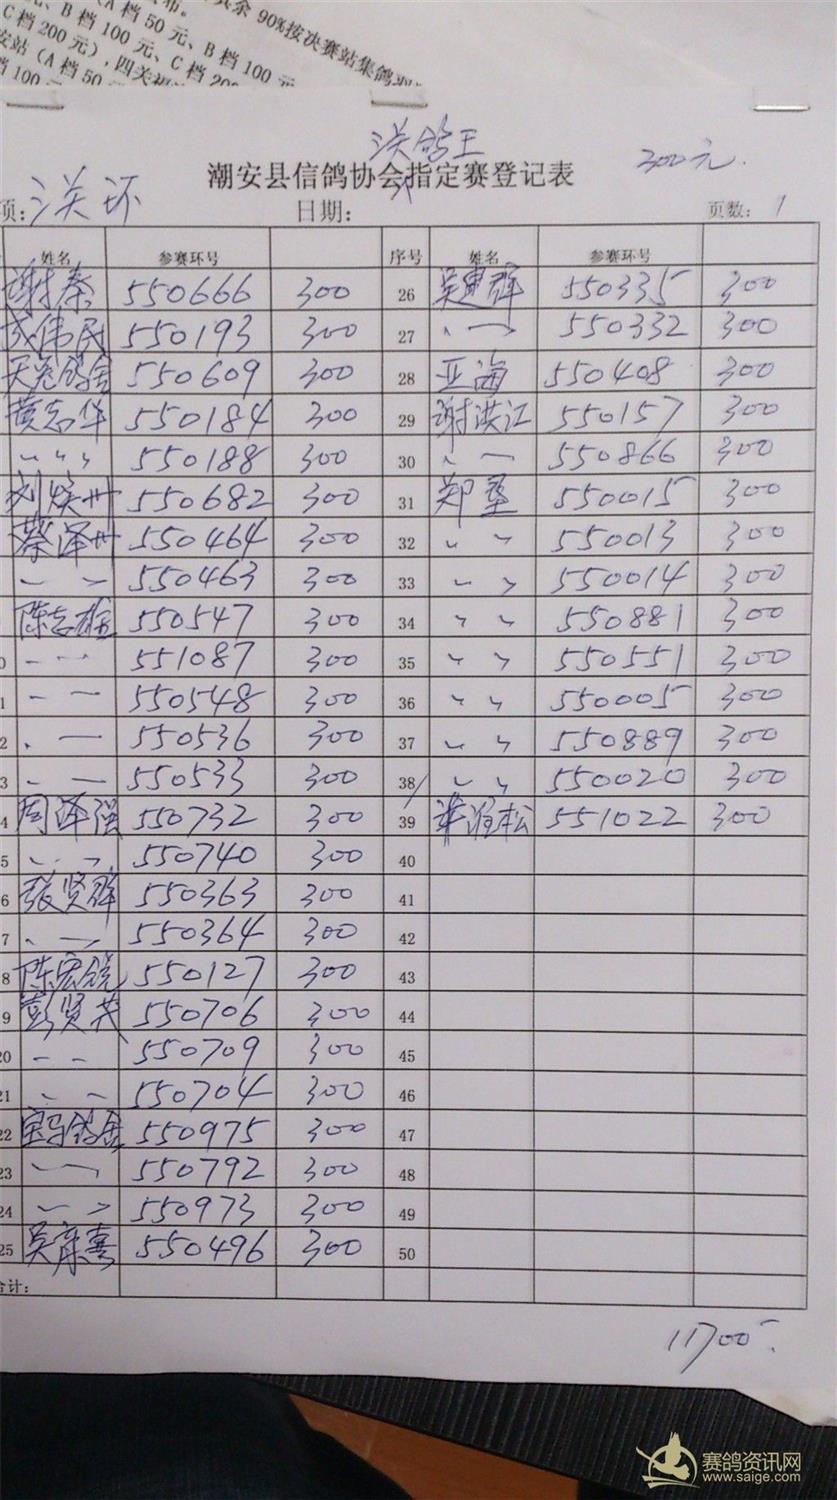 余 90%按决赛站集鸽羽
(A档50元、B档100元
B档100元、C档200
C档200元),四关福
安站(A档50元
档100元
三关鸽王
300元
潮安县信鸽协会指定赛登记表
项: 三关环 日期: 页数: 1
姓名 参赛环号 序号 姓名 参赛环号
谢泰 550666 300 26 550335 300
伟民 550193 300 27 〃 550332 300
天 鸽舍 550609 300 28 亚海 550408 300
黄志华 550184 300 29 谢洪江 550157 300
〃 〃 550188 300 30 〃 550866 300
刘 550682 300 31 郑 550015 300
蔡泽 550464 300 32 〃 〃 550013 300
〃 〃 550463 300 33 〃 〃 550014 300
陈志雄 550547 300 34 〃 〃 550881 300
0 〃 〃 551087 300 35 〃 〃 550551 300
1 〃 〃 550548 300 36 〃 〃 550005 300
2 〃 550536 300 37 〃 〃 550889 300
3 〃 〃 550533 300 38 〃 〃 550020 300
4 周泽强 550732 300 39 松 551022 300
5 〃 〃 550740 300 40
6 张贤群 550363 300 41
7 〃 550364 300 42
8 陈宏 550127 300 43
9 彭贤茂 550706 300 44
20 〃 〃 550709 300 45
21 〃 〃 550704 300 46
22 宝马鸽舍 550975 300 47
23 〃 〃 550792 300 48
24 〃 〃 550973 300 49
25 吴 喜 550496 300 50
合计:
11700
赛鸽资讯网
www.saige.com